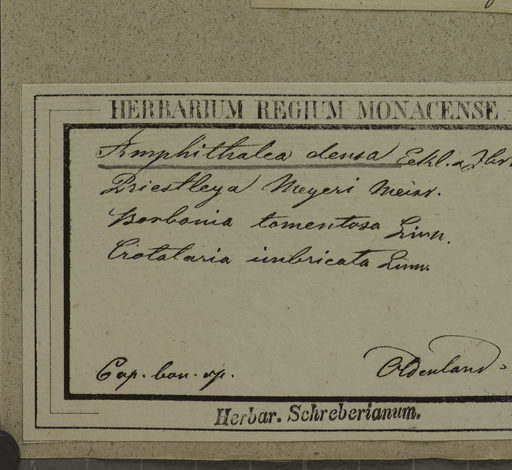 HERBARIUM REGIUM MONACENSE.
Amphithalea densa Eckl. a. Zhr.
Priestleya Meyeri Meisn.
Borbonia tomentosa Linn.
Crotalaria imbricata Linn.
Cap. bon. sp. Oldenland.
Herbar. Schreberianum.